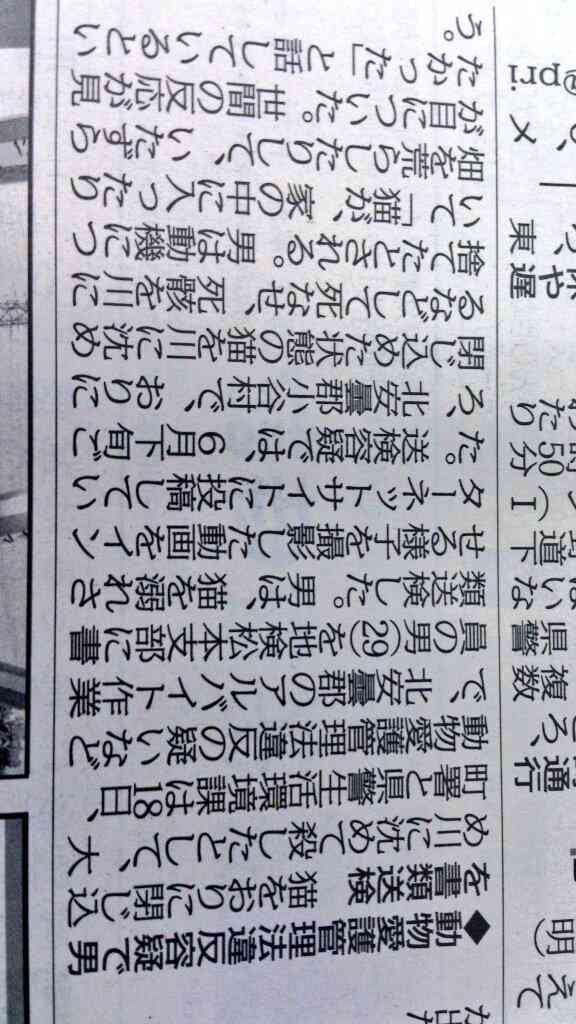 ◆動物愛護管理法違反容疑で男
を書類送検　猫をおりに閉じ込
め川に沈めて殺したとして、大
町署と県警生活環境課は18日、
動物愛護管理法違反の疑いなど
で、北安曇郡のアルバイト作業
員の男(29)を地検松本支部に書
類送検した。男は、猫を溺れさ
せる様子を撮影した動画をイン
ターネットサイトに投稿してい
た。送検容疑では、6月下旬ご
ろ、北安曇郡小谷村で、おりに
閉じ込めた状態の猫を川に沈め
るなどして死なせ、死骸を川に
捨てたとされる。男は動機につ
いて「猫が、家の中に入ったり
畑を荒らしたりして、いたずら
が目についた。世間の反応が見
たかった」と話しているとい
う。
えて
明)
通行
複数
県警
いな
道下
(I
50分
たり
や遅
東
メ
@pri